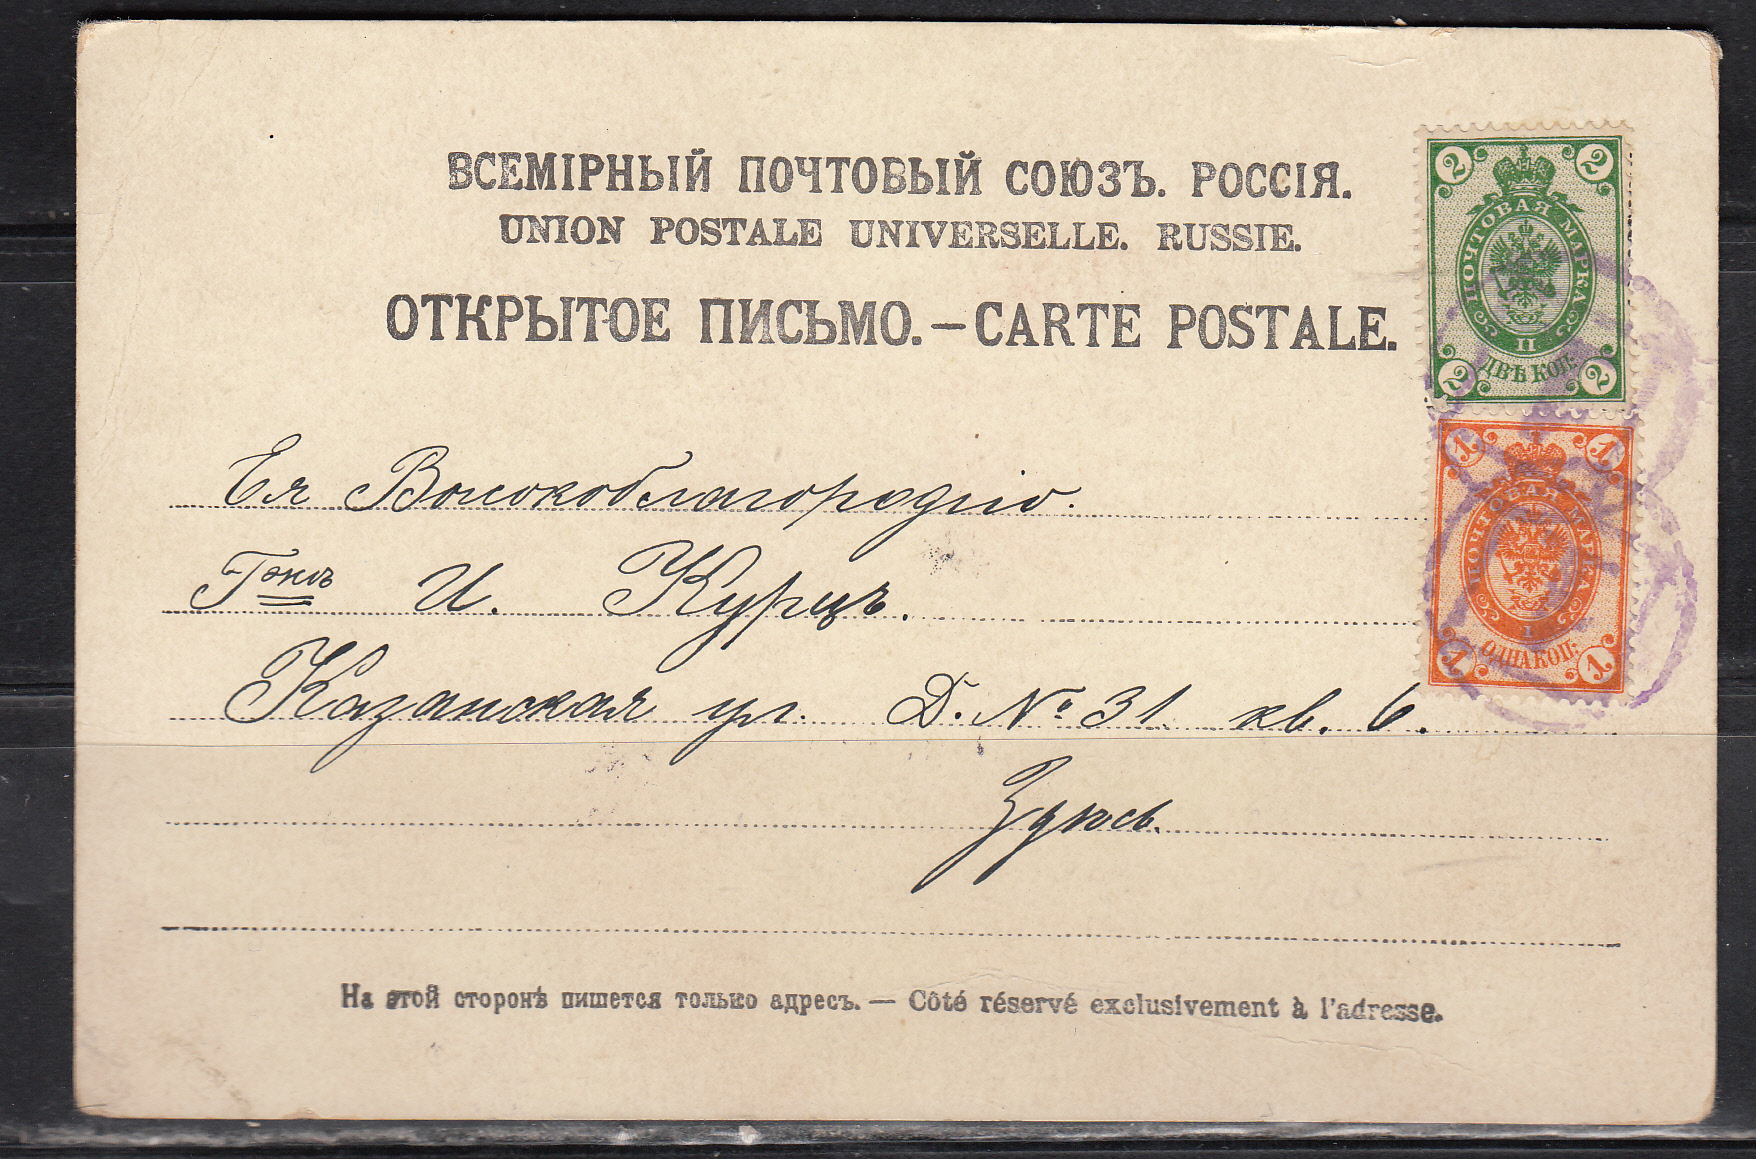 ВСЕМІРНЫЙ ПОЧТОВЫЙ СОЮЗЪ. РОССІЯ.
UNION POSTALE UNIVERSELLE. RUSSIE.
ОТКРЫТОЕ ПИСЬМО. – CARTE POSTALE.
2 2
ПОЧТОВАЯ МАРКА
II
ДВѢ КОП.
2 2
1 1
ПОЧТОВАЯ МАРКА
1
ОДНА КОП.
1 1
Ея Высокоблагородію.
Гжѣ И. Курцъ.
Казанская ул. Д. № 31 кв. 6.
Здѣсь.
На этой сторонѣ пишется только адресъ. — Côté réservé exclusivement à l'adresse.